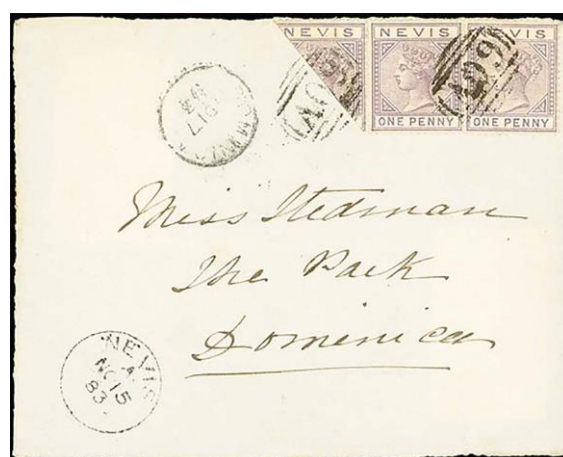 NEVIS NEVIS NEVIS
ONE PENNY ONE PENNY
A09
Miss Stedman
The Park
Dominica
NEVIS
A
NO 15
83